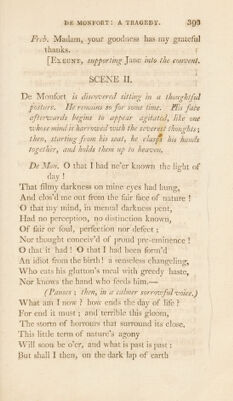 DE MONFORT: A TRAGEDY. 393
Freb. Madam, your goodness has my grateful
thanks.
[EXEUNT, supporting JANE into the convent.
SCENE II.
DE MONFORT is discovered sitting in a thoughtful
posture. He remains so for some time. His face
afterwards begins to appear agitated, like one
whose mind is harrowed with the severest thoughts;
then, starting from his seat, he clasps his hands
together, and holds them up to heaven.
De Mon. O that I had ne'er known the light of
day!
That filmy darkness on mine eyes had hung,
And clos'd me out from the fair face of nature!
O that my mind, in mental darkness pent,
Had no perception, no distinction known,
Of fair or foul, perfection nor defect;
Nor thought conceiv'd of proud pre-eminence!
O that it had! O that I had been form'd
An idiot from the birth! a senseless changeling,
Who eats his glutton's meal with greedy haste,
Nor knows the hand who feeds him.—
(Pauses; then, in a calmer sorrowful voice.)
What am I now? how ends the day of life?
For end it must; and terrible this gloom,
The storm of horrours that surround its close.
This little term of nature's agony
Will soon be o'er, and what is past is past:
But shall I then, on the dark lap of earth